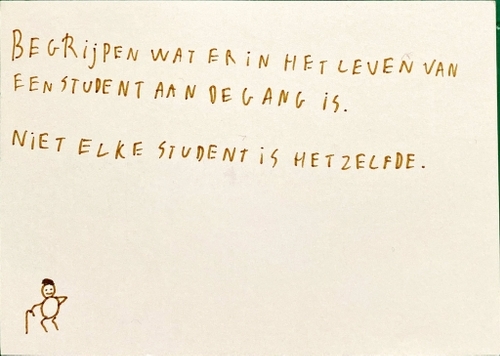 BEGRijPEN WAT ER iN HET LEVEN VAN
EEN STUDENT AAN DE GANG iS.
NiET ELKE STUDENT iS HETZELFDE.